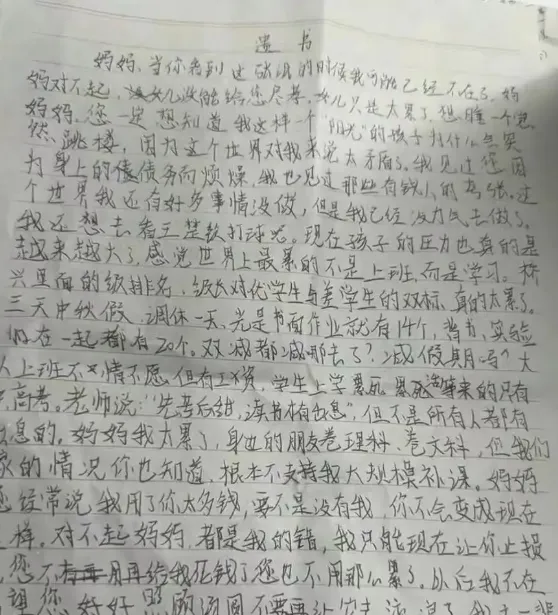 遗书
妈妈,当你看到这张纸的时候我可能已经不在了,妈
妈对不起,女儿没能给您尽孝,女儿只是太累了,想睡一个觉
妈妈,您一定想知道我这样一个“阳光”的孩子为什么会突
然跳楼,因为这个世界对我来说太矛盾了,我见过您因
为身上的债务而烦燥,我也见过那些有钱人的夸张,这
个世界我还有好多事情没做,但是我已经没力气去做了,
我还想去看王楚钦打球呢。现在孩子的压力也真的是
越来越大了,感觉世界上最累的不是上班,而是学习。校
兴里面的级排名,级长对优学生与差学生的双标,真的太累了。
三天中秋假,调休一天,光是书面作业就有14个,背书,实验
们在一起都有20个。双减都减哪去了?减假期吗?大
人上班不情不愿,但有工资,学生上学累死累活等来的只有
高考,老师说:“先苦后甜,读书有出息”,但不是所有人都有
息的,妈妈我太累了,身边的朋友卷理科、卷文科,但我们
家的情况你也知道,根本不支持我大规模补课。妈妈
您经常说我用了你太多钱,要不是没有我,你不会变成现在
样。对不起妈妈,都是我的错,我只能现在让你止损
,您不用再给我花钱了您也不用那么累了。以后我不在
望您好好照顾汤圆不要再让